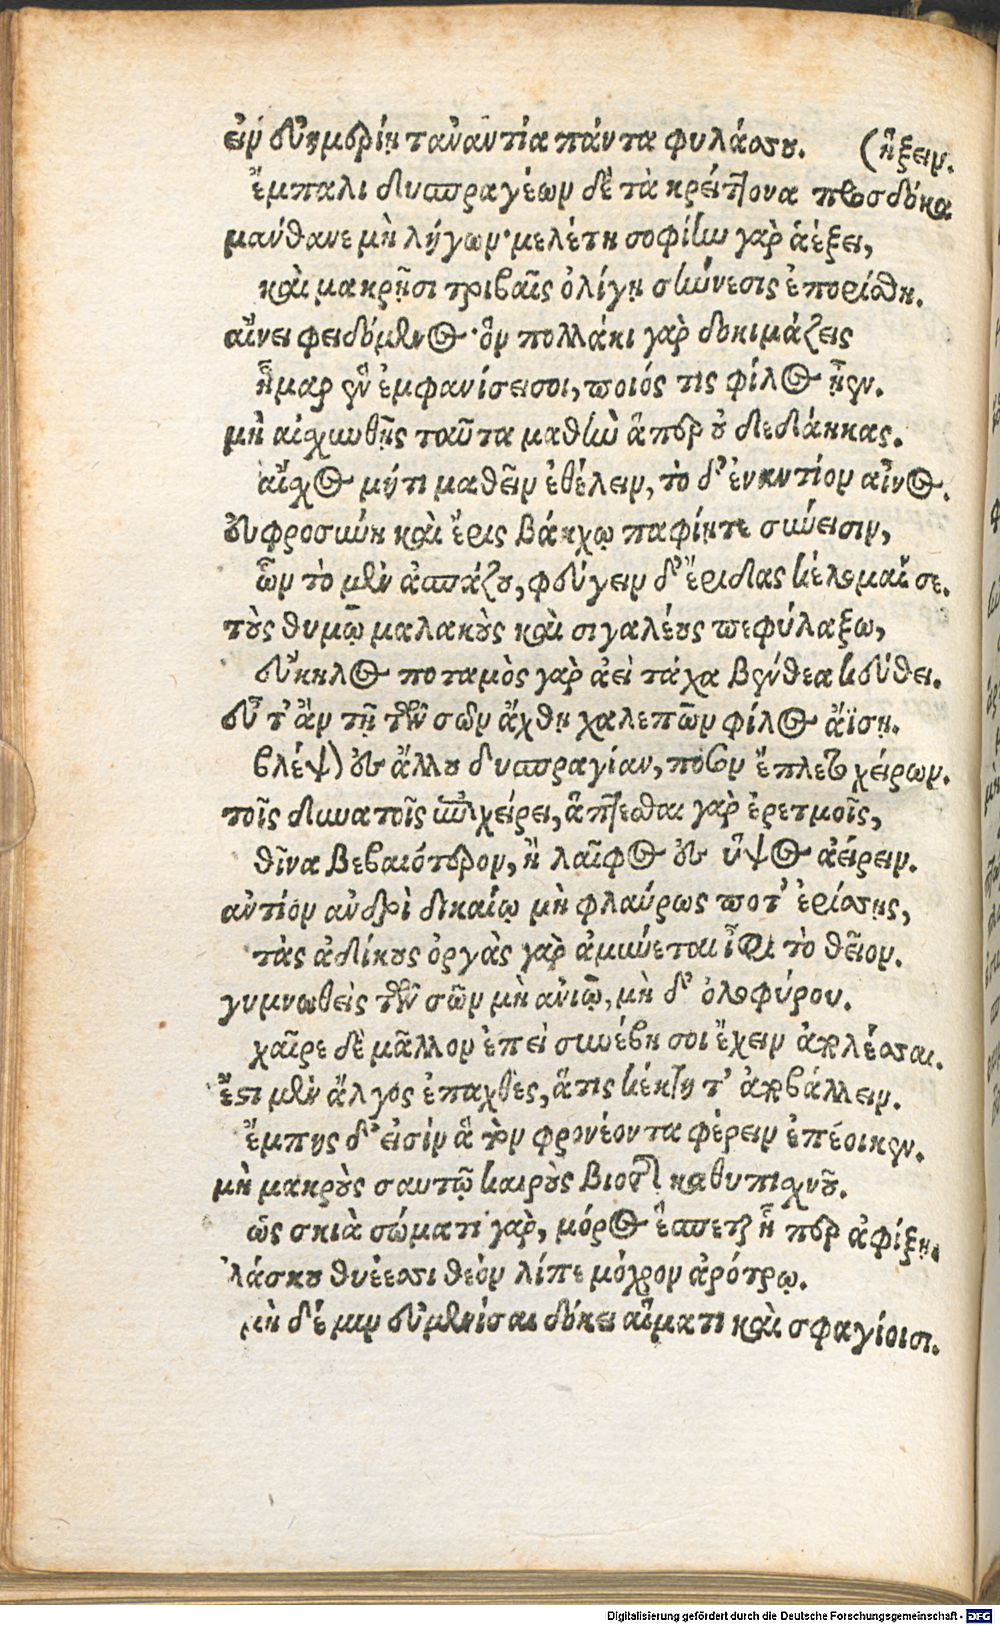 εἰν εὐημερίῃ τἀναντία πάντα φυλάσσου. (ἥξειν.
ἔμπαλι δυσπραγέων δὲ τὰ κρείττονα προσδόκα
μάνθανε μὴ λήγων· μελέτη σοφίην γὰρ ἀέξει,
καὶ μακρῇσι τριβαῖς ὀλίγη σύνεσις ἐπορίσθη.
αἴνει φειδόμενος· ὃν πολλάκι γὰρ δοκιμάζεις
ἦμαρ ἓν ἐμφανίσει σοι, ποιός τις φίλος ἦεν.
μὴ αἰσχυνθῇς ταῦτα μαθεῖν ἅπερ οὐ δεδάηκας.
αἶσχος μήτι μαθεῖν ἐθέλειν, τὸ δ' ἐναντίον αἶνος.
εὐφροσύνη καὶ ἔρις βάκχῳ παφίῃ τε σύνεισιν,
ὧν τὸ μὲν ἀσπάζου, φεύγειν δ' ἔριδας κέλομαί σε.
τοὺς θυμῷ μαλακοὺς καὶ σιγαλέους πεφύλαξο,
εὔκηλος ποταμὸς γὰρ ἀεὶ τάχα βένθεα κεύθει.
εὖτ' ἂν τῇ τῶν σῶν ἄχθῃ χαλεπῶν φίλος ἄϊσῃ.
βλέψον ἐς ἄλλου δυσπραγίαν, πόσον ἔπλετο χείρων.
τοῖς δυνατοῖς ἐπιχείρει, ἅπτεσθαι γὰρ ἐρετμοῖς,
θῖνα βεβαιότερον, ἢ λαῖφος ἐς ὕψος ἀείρειν.
ἀντίον ἀνδρὶ δικαίῳ μὴ φλαύρως ποτ' ἐρίσσῃς,
τὰς ἀδίκους ὀργὰς γὰρ ἀμύνεται ἶφι τὸ θεῖον.
γυμνωθεὶς τῶν σῶν μὴ ἀνιῶ, μὴ δ' ὀλοφύρου.
χαῖρε δὲ μᾶλλον ἐπεὶ συνέβη σοι ἔχειν ἀπολέσσαι.
ἔστι μὲν ἄλγος ἐπαχθὲς, ἅτις κέκτητ' ἀποβάλλειν.
ἔμπης δ' εἰσὶν ἃ τὸν φρονέοντα φέρειν ἐπέοικεν.
μὴ μακροὺς σαυτῷ καιροὺς βιότου καθυπισχνοῦ.
ὡς σκιὰ σώματι γὰρ, μόρος ἕσπεται ᾗ περ ἀφίξῃ.
ἱλάσκου θυέεσσι θεὸν λίπε μόσχον ἀρότρῳ.
μὴ δέ μιν εὐμενίσαι δόκει αἵματι καὶ σφαγίοισι.
Digitalisierung gefördert durch die Deutsche Forschungsgemeinschaft - DFG